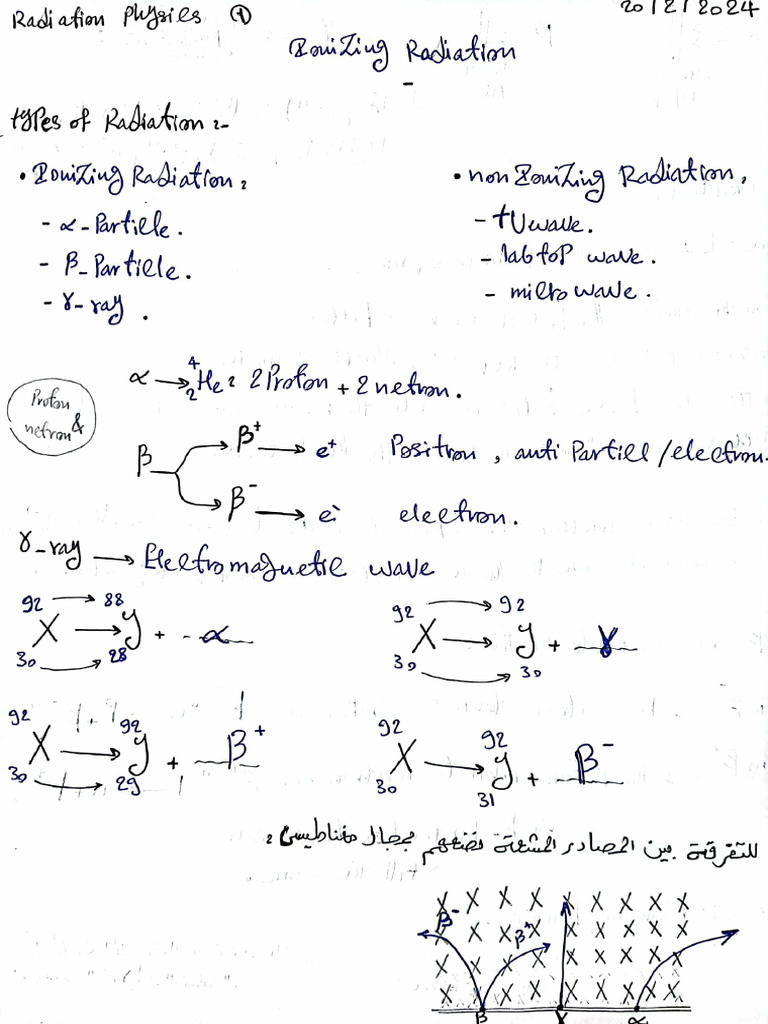 Radiation Physics ①
20/2/2024
Ionizing Radiation
types of Radiation :-
• Ionizing Radiation :
- α-Particle.
- β-Particle.
- γ-ray.
• non Ionizing Radiation,
- tU wave.
- labtop wave.
- microwave.
α → ⁴₂He : 2 Proton + 2 netron.
Proton & netron
β → β⁺ → e⁺ Positron, anti Particl/electron.
β⁻ → e⁻ electron.
γ-ray → Electromagnetic wave
92 → 88
X → y + α
30 → 28
92 → 92
X → y + γ
30 → 30
92 92
X → y + β⁺
30 → 29
92 92
X → y + β⁻
30 31
للتفرقة بين المصادر المشعة نضعهم بمجال مغناطيسي :
X X X X X X X X X
β⁻ X X β⁺ X X X X X X
X X X X X X X X
X X X X X X X X X
β γ α